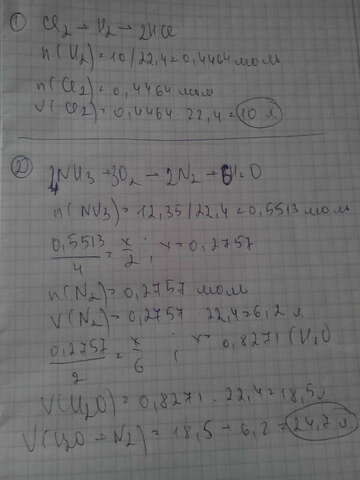 ①
Cl2 → H2 → 2HCl
n(H2) = 10/22,4 = 0,4464 мол
n(Cl2) = 0,4464 мол
V(Cl2) = 0,4464 22,4 = 10 л
②
4NH3 + 3O2 → 2N2 + 6H2O
n(NH3) = 12,35/22,4 = 0,5513 мол
0,5513/4 = x/2 ; x = 0,2757
n(N2) = 0,2757 мол
V(N2) = 0,2757 22,4 = 6,2 л
0,2757/2 = x/6 ; x = 0,8271
V(H2O) = 0,8271 · 22,4 = 18,5 л
V(H2O + N2) = 18,5 + 6,2 = 24,7 л